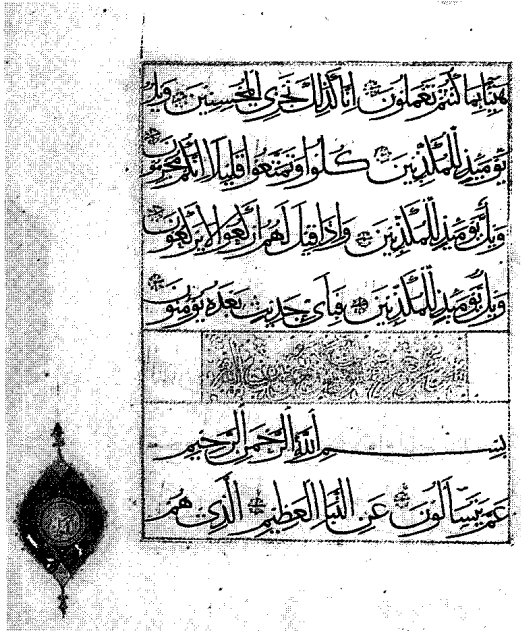 هنيئا بما كنتم تعملون انا كذلك نجزي المحسنين ويل
يومئذ للمكذبين كلوا وتمتعوا قليلا انكم مجرمون
ويل يومئذ للمكذبين واذا قيل لهم اركعوا لا يركعون
ويل يومئذ للمكذبين فبأي حديث بعده يؤمنون
بسم الله الرحمن الرحيم
عم يتساءلون عن النبإ العظيم الذي هم